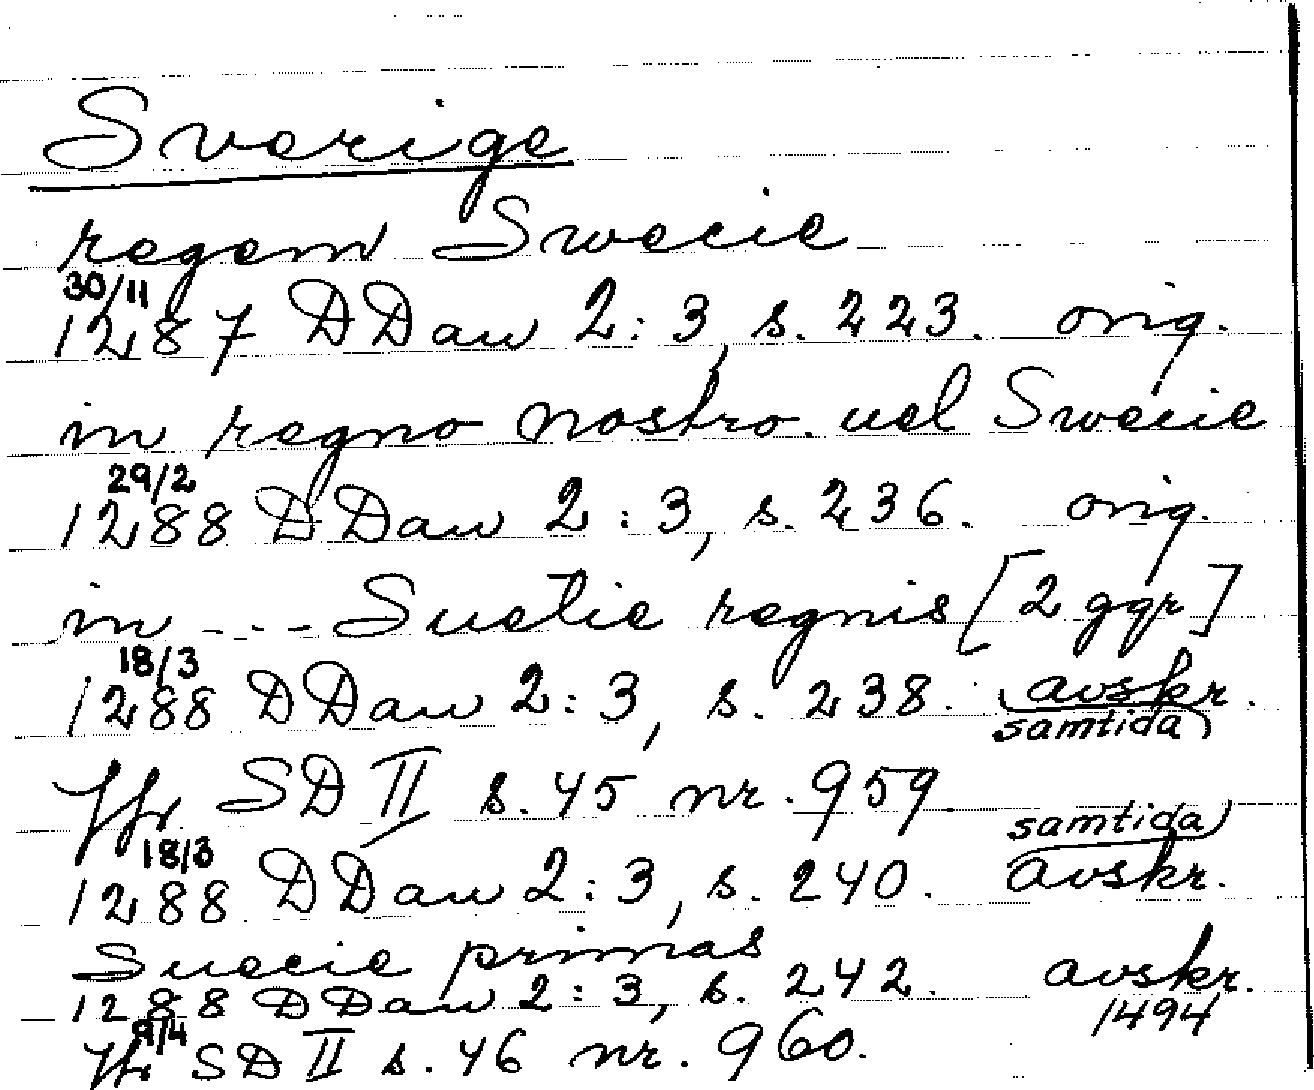 Sverige
regem Swecie
30/11
1287 DDan 2:3, s. 223. orig.
in regno nostro uel Swecie
29/2
1288 DDan 2:3, s. 236. orig.
in --- Suetie regnis [2 ggr]
18/3
1288 DDan 2:3, s. 238. avskr.
samtida
Jfr SD II s. 45 nr. 959
samtida
18/3
1288 DDan 2:3, s. 240. avskr.
Suecie primas
1288 DDan 2:3, s. 242. avskr.
9/4 1494
Jfr SD II s. 46 nr. 960.